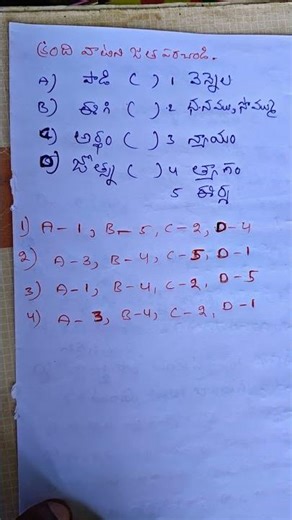 క్రింది వాటిని జత పరచండి.
A) పాడి ( ) 1 వెన్నెల
B) ఈగి ( ) 2 ధనము, సొమ్ము
C) అర్థం ( ) 3 న్యాయం
D) జ్యోత్స్న ( ) 4 త్యాగం
5 ఈర్ష్య
1) A-1, B-5, C-2, D-4
2) A-3, B-4, C-5, D-1
3) A-1, B-4, C-2, D-5
4) A-3, B-4, C-2, D-1